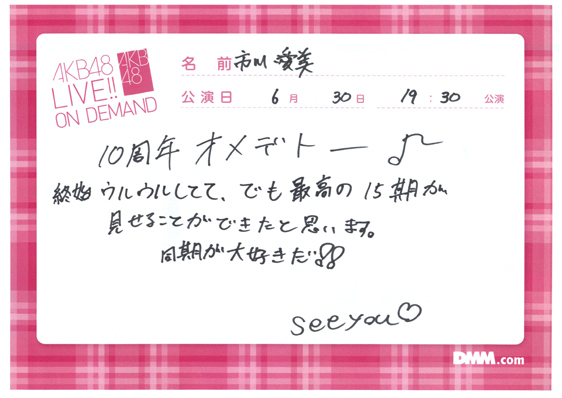 AKB48
LIVE!!
ON DEMAND
AKB
48
名 前 市川 愛美
公演日 6月 30日 19:30 公演
10周年オメデトー♪
終始ウルウルしてて、でも最高の15期が
見せることができたと思います。
同期が大好きだ!!
see you♡
DMM.com